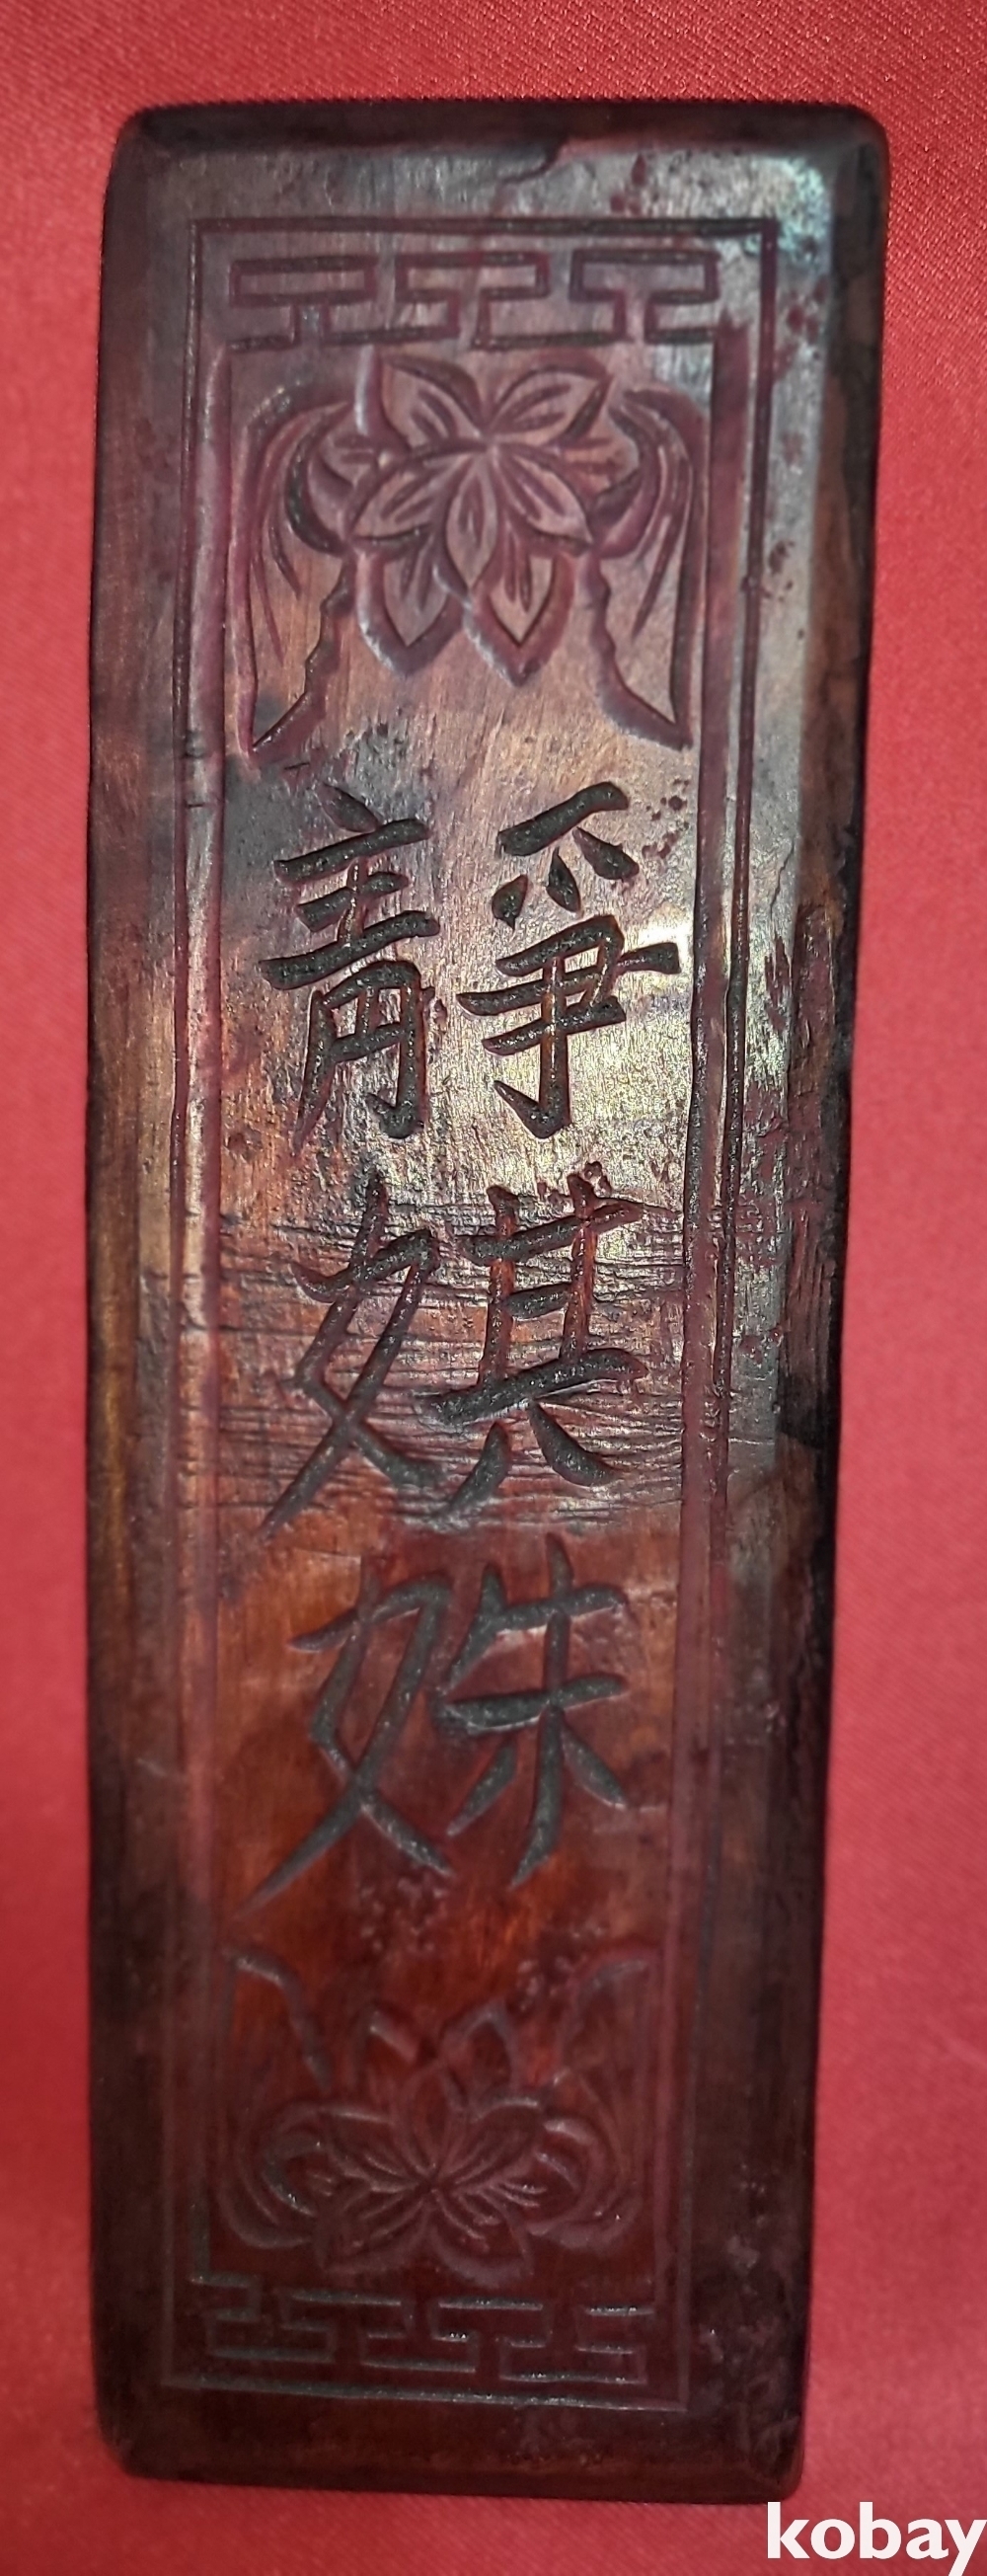 靜娸姝
kobay